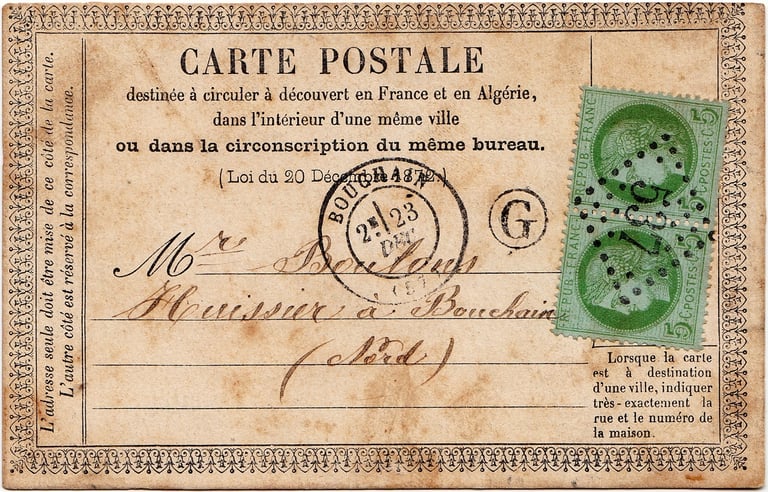 CARTE POSTALE
destinée à circuler à découvert en France et en Algérie,
dans l'intérieur d'une même ville
ou dans la circonscription du même bureau.
(Loi du 20 Décembre 1872.)
BOUCHAIN
2E 23
DEC
(57)
G
REPUB. FRANC.
5 C POSTES 5 C
REPUB. FRANC.
5 C POSTES 5 C
557
Mr Boulons
Huissier à Bouchain
(Nord)
L'adresse seule doit être mise de ce côté de la carte.
L'autre côté est réservé à la correspondance.
Lorsque la carte
est à destination
d'une ville, indiquer
très-exactement la
rue et le numéro de
la maison.